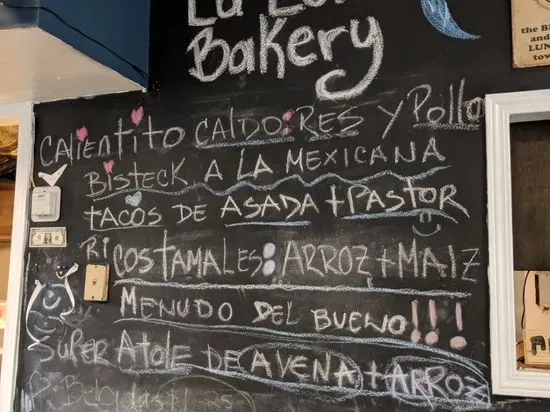 Bakery
CALIENTITO CALDO:RES Y Pollo
BISTECK A LA MEXICANA
TACOS DE ASADA + PASTOR
RICOSTAMALES: ARROZ + MAIZ
MENUDO DEL BUENO!!!
SUPER ATOLE DE AVENA + ARROZ
Bebidas $1.25
the B
and
LUN
tow